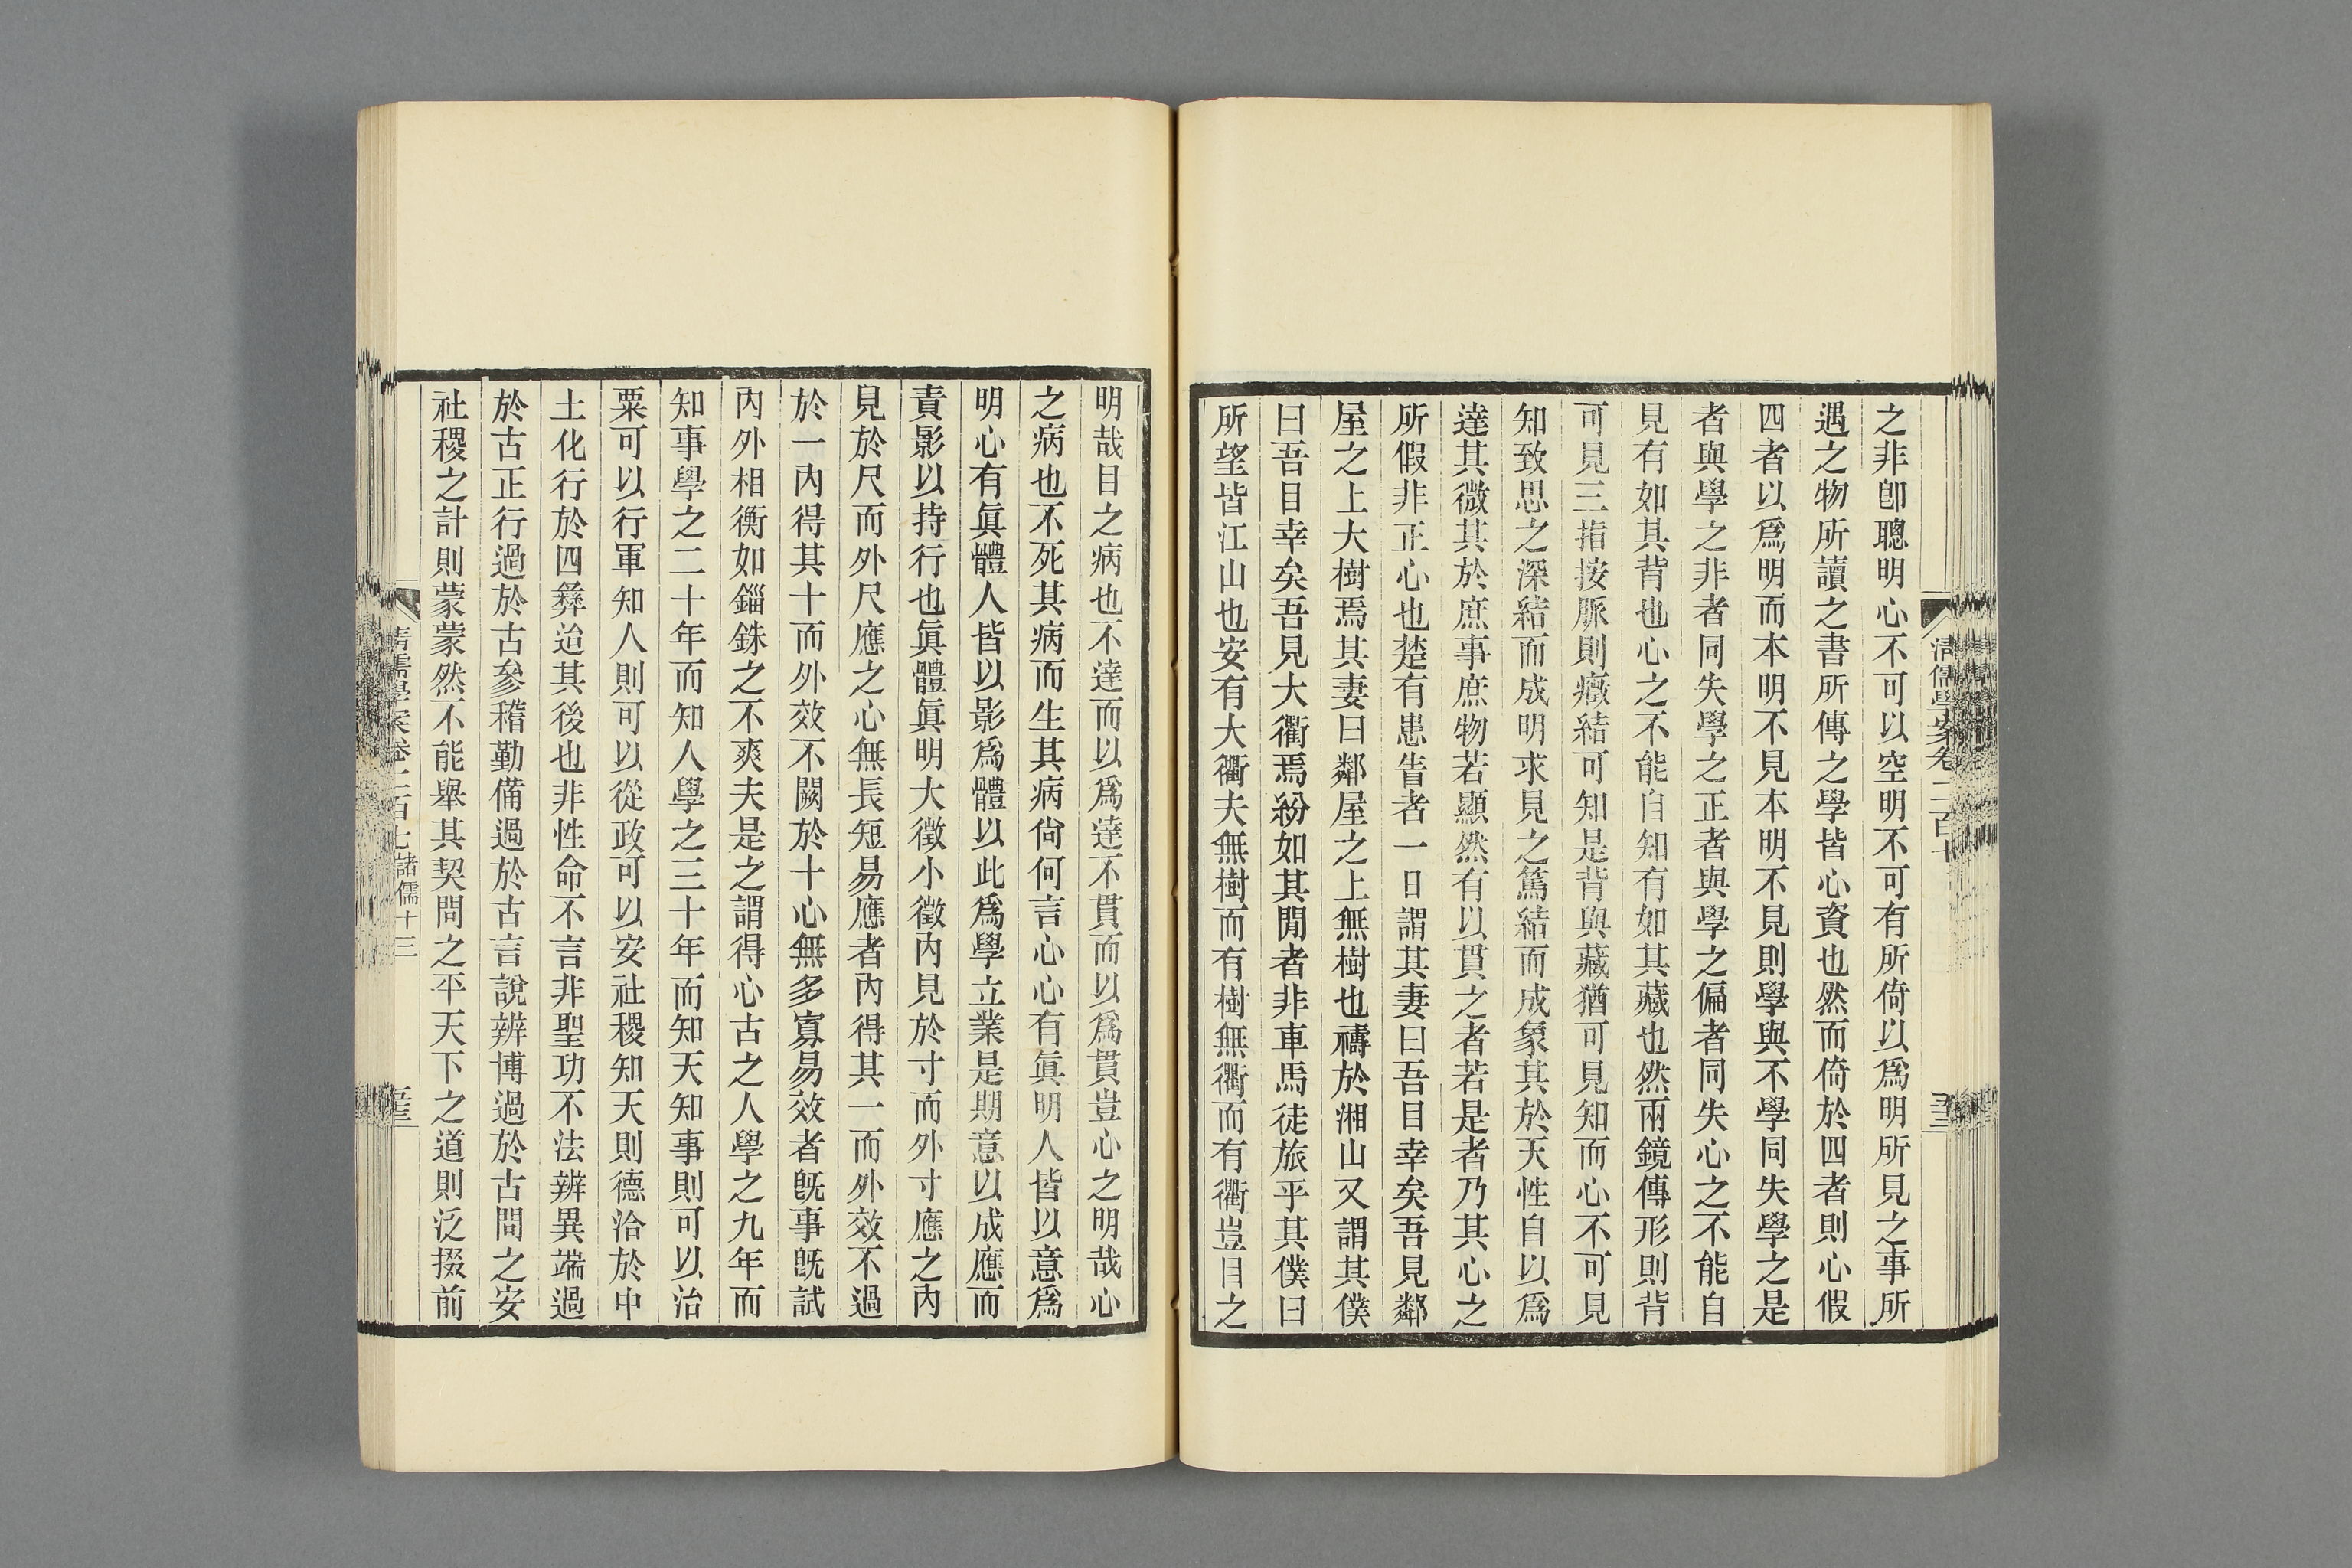 之非卽聰明心不可以空明不可有所倚以爲明所見之事所
遇之物所讀之書所傳之學皆心資也然而倚於四者則心假
四者以爲明而本明不見本明不見則學與不學同失學之是
者與學之非者同失學之正者與學之偏者同失心之不能自
見有如其背也心之不能自知有如其藏也然兩鏡傳形則背
可見三指按脈則癥結可知是背與藏猶可見知而心不可見
知致思之深結而成明求見之篤結而成象其於天性自以爲
達其微其於庶事庶物若顯然有以貫之者若是者乃其心之
所假非正心也楚有患眚者一日謂其妻曰吾目幸矣吾見鄰
屋之上大樹焉其妻曰鄰屋之上無樹也禱於湘山又謂其僕
曰吾目幸矣吾見大衢焉紛如其閒者非車馬徒旅乎其僕曰
所望皆江山也安有大衢夫無樹而有樹無衢而有衢豈目之
明哉目之病也不達而以爲達不貫而以爲貫豈心之明哉心
之病也不死其病而生其病尙何言心心有眞明人皆以意爲
明心有眞體人皆以影爲體以此爲學立業是期意以成應而
責影以持行也眞體眞明大徵小徵內見於寸而外寸應之內
見於尺而外尺應之心無長短易應者內得其一而外效不過
於一內得其十而外效不闕於十心無多寡易效者旣事旣試
內外相衡如錙銖之不爽夫是之謂得心古之人學之九年而
知事學之二十年而知人學之三十年而知天知事則可以治
粟可以行軍知人則可以從政可以安社稷知天則德洽於中
土化行於四彝迨其後也非性命不言非聖功不法辨異端過
於古正行過於古參稽勤備過於古言說辨博過於古問之安
社稷之計則蒙蒙然不能舉其契問之平天下之道則泛掇前
清儒學案卷二百七 諸儒十三